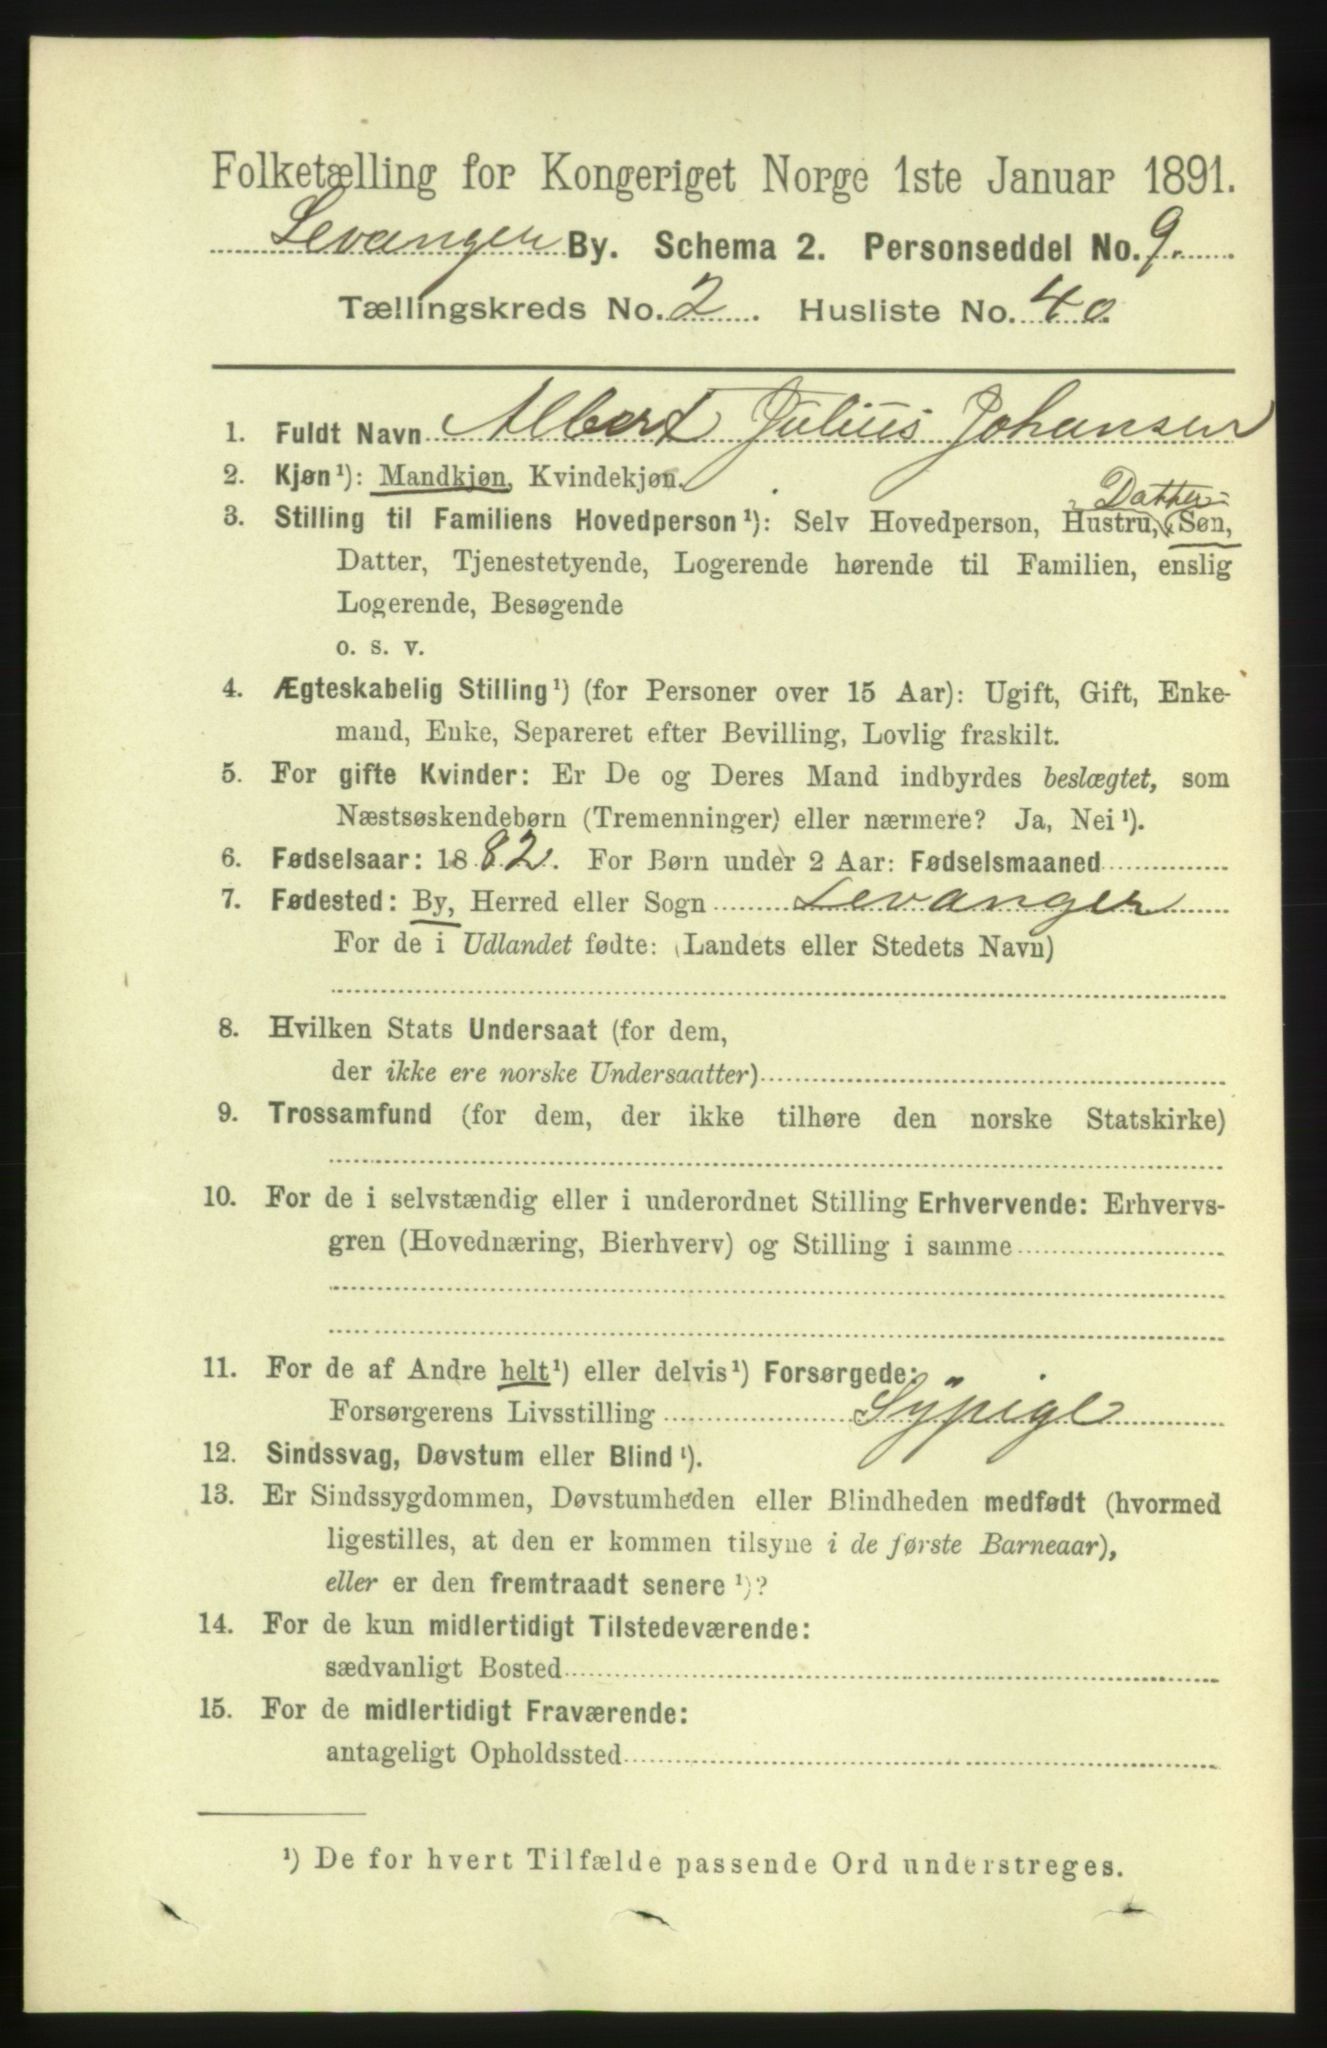 Folketælling for Kongeriget Norge 1ste Januar 1891.
Levanger By. Schema 2. Personseddel No. 9.
Tællingskreds No. 2. Husliste No. 40
1. Fuldt Navn Albert Julius Johansen
2. Kjøn¹): Mandkjøn, Kvindekjøn.
Datter-
3. Stilling til Familiens Hovedperson¹): Selv Hovedperson, Hustru, Søn,
Datter, Tjenestetyende, Logerende hørende til Familien, enslig
Logerende, Besøgende
o. s. v.
4. Ægteskabelig Stilling¹) (for Personer over 15 Aar): Ugift, Gift, Enke-
mand, Enke, Separeret efter Bevilling, Lovlig fraskilt.
5. For gifte Kvinder: Er De og Deres Mand indbyrdes beslægtet, som
Næstsøskendebørn (Tremenninger) eller nærmere? Ja, Nei¹).
6. Fødselsaar: 1882. For Børn under 2 Aar: Fødselsmaaned
7. Fødested: By, Herred eller Sogn Levanger
For de i Udlandet fødte: (Landets eller Stedets Navn)
8. Hvilken Stats Undersaat (for dem,
der ikke ere norske Undersaatter)
9. Trossamfund (for dem, der ikke tilhøre den norske Statskirke)
10. For de i selvstændig eller i underordnet Stilling Erhvervende: Erhvervs-
gren (Hovednæring, Bierhverv) og Stilling i samme
11. For de af Andre helt¹) eller delvis¹) Forsørgede:
Forsørgerens Livsstilling Sÿpige
12. Sindssvag, Døvstum eller Blind¹).
13. Er Sindssygdommen, Døvstumheden eller Blindheden medfødt (hvormed
ligestilles, at den er kommen tilsyne i de første Barneaar),
eller er den fremtraadt senere¹)?
14. For de kun midlertidigt Tilstedeværende:
sædvanligt Bosted
15. For de midlertidigt Fraværende:
antageligt Opholdssted
¹) De for hvert Tilfælde passende Ord understreges.